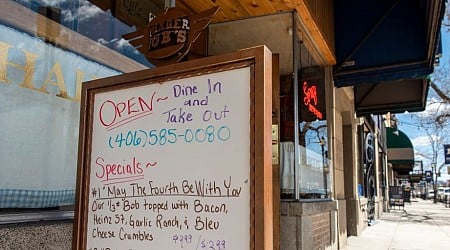 OPEN~
Dine In
and
Take Out
(406) 585-0080
Specials~
#1 "May The Fourth Be With You"
Our 1/3# Bob topped with Bacon,
Heinz 57, Garlic Ranch, & Bleu
Cheese Crumbles